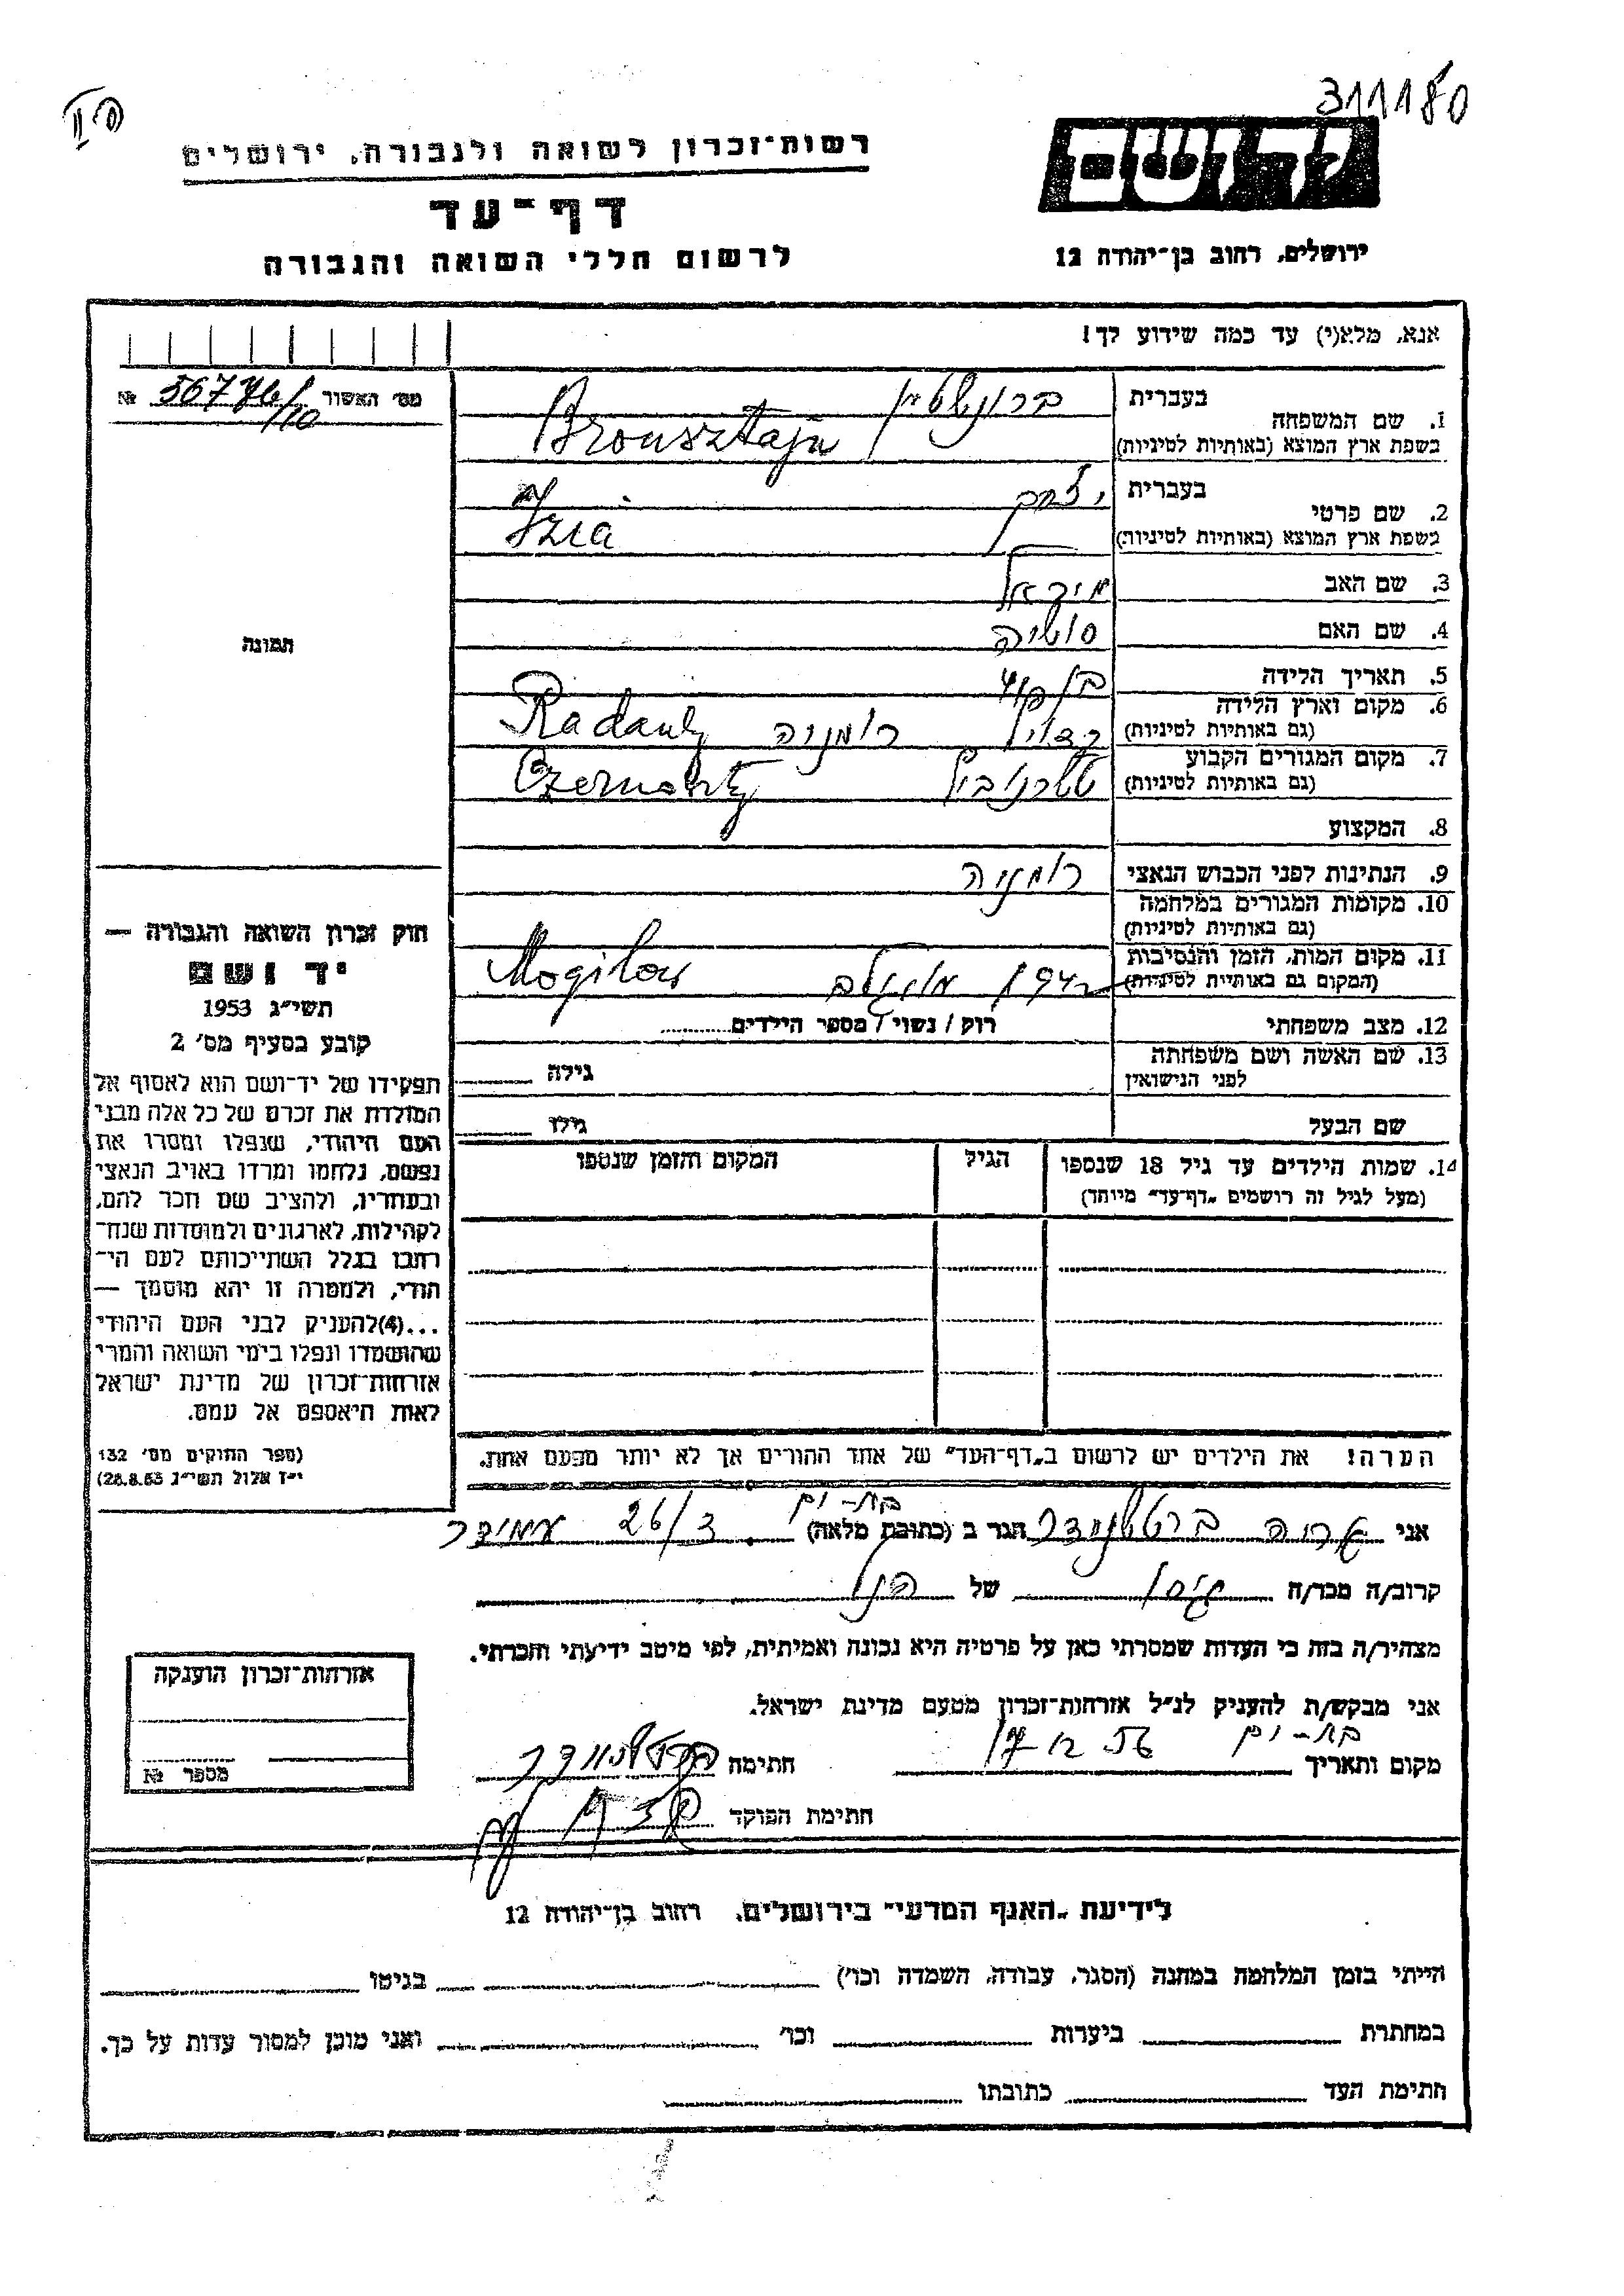 311180
רשות־זכרון לשואה ולגבורה, ירושלים
דף־עד
לרשום חללי השואה והגבורה
יד ושם
ירושלים, רחוב בן־יהודה 12
אנא, מלא(י) עד כמה שידוע לך!
מס׳ האשור №
1. שם המשפחה
בעברית ברונשטיין
בשפת ארץ המוצא (באותיות לטיניות) Bronsztajn
2. שם פרטי
בעברית
בשפת ארץ המוצא (באותיות לטיניות) Izia
3. שם האב מיכאל
4. שם האם
5. תאריך הלידה בן
6. מקום וארץ הלידה
(גם באותיות לטיניות) רומניה Radautz
7. מקום המגורים הקבוע
(גם באותיות לטיניות)
8. המקצוע
9. הנתינות לפני הכבוש הנאצי רומניה
10. מקומות המגורים במלחמה
(גם באותיות לטיניות)
11. מקום המות, הזמן והנסיבות
(המקום גם באותיות לטיניות) מוגילב Mogilow
12. מצב משפחתי רוק / נשוי / מספר הילדים
13. שם האשה ושם משפחתה
לפני הנישואין גילה
שם הבעל גילו
14. שמות הילדים עד גיל 18 שנספו הגיל המקום והזמן שנספו
(מעל לגיל זה רושמים „דף־עד״ מיוחד)
הערה! את הילדים יש לרשום ב„דף־העד״ של אחד ההורים אך לא יותר מפעם אחת.
תמונה
חוק זכרון השואה והגבורה —
יד ושם
תשי״ג 1953
קובע בסעיף מס׳ 2
תפקידו של יד־ושם הוא לאסוף אל
המולדת את זכרם של כל אלה מבני
העם היהודי, שנפלו ומסרו את
נפשם, נלחמו ומרדו באויב הנאצי
ובעוזריו, ולהציב שם וזכר להם,
לקהילות, לארגונים ולמוסדות שנח־
רבו בגלל השתייכותם לעם הי־
הודי, ולמטרה זו יהא מוסמך —
...(4)להעניק לבני העם היהודי
שהושמדו ונפלו בימי השואה והמרי
אזרחות־זכרון של מדינת ישראל
לאות היאספם אל עמם.
(ספר החוקים מס׳ 132
י״ז אלול תשי״ג 28.8.53)
אני אריה הגר ב (כתובת מלאה) בת-ים 26/3 עמידר
קרוב/ה מכר/ה גיסו של הנ״ל
מצהיר/ה בזה כי העדות שמסרתי כאן על פרטיה היא נכונה ואמיתית, לפי מיטב ידיעתי והכרתי.
אני מבקש/ת להעניק לנ״ל אזרחות־זכרון מטעם מדינת ישראל.
מקום ותאריך בת-ים 17.12.56 חתימה
חתימת הפוקד
אזרחות־זכרון הוענקה
מספר №
לידיעת „האגף המדעי״ בירושלים, רחוב בן־יהודה 12
הייתי בזמן המלחמה במחנה (הסגר, עבודה, השמדה וכו׳) בגיטו
במחתרת ביערות וכו׳ ואני מוכן למסור עדות על כך.
חתימת העד כתובתו